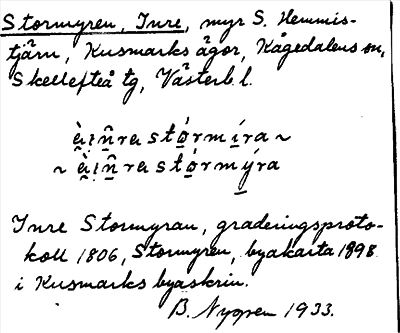 Stormyren, Inre, myr S. Hemmis-
tjärn, Kusmarks ägor, Kågedalens sn,
Skellefteå tg, Västerb. l.
stó̱rmí̱ra ~
stó̱rmý̱ra
Inre Stormyran, graderingsproto-
koll 1806, Stormyren, byakarta 1898
i Kusmarks byaskrin.
B. Nygren 1933.